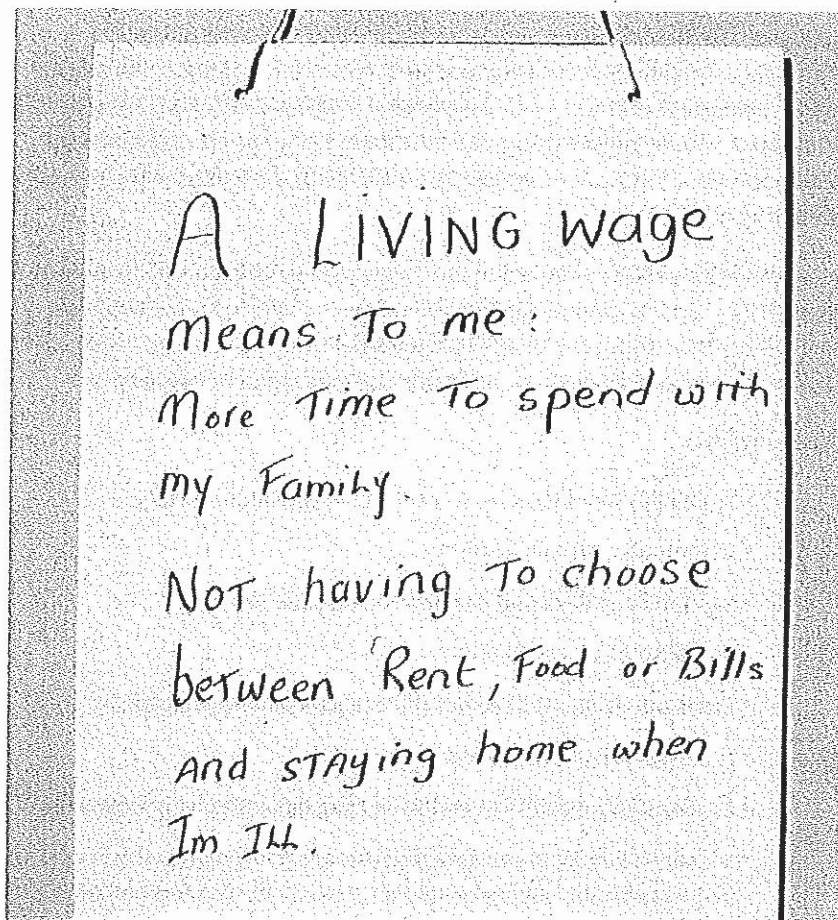 A LIVING wage
Means To me :
More Time To spend with
my Family.
Not having To choose
between Rent, Food or Bills
And STAying home when
Im ILL.